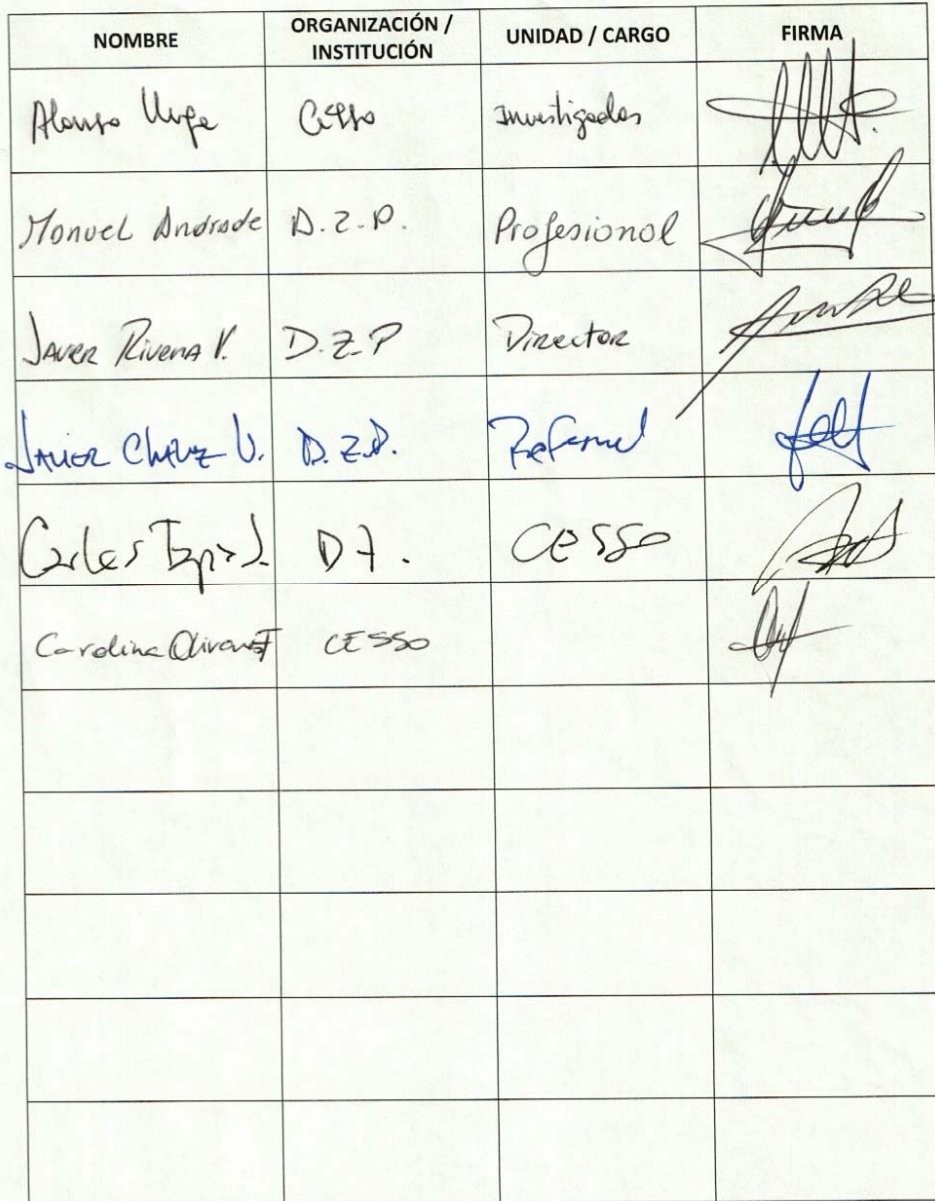 NOMBRE ORGANIZACIÓN / INSTITUCIÓN UNIDAD / CARGO FIRMA
Alonso Cesso Investigador
Manuel Andrade D.Z.P. Profesional
Javier Rivera V. D.Z.P Director
Javier Chávez V. D.Z.P.
Carlos Tapia CESSO
Carolina CESSO